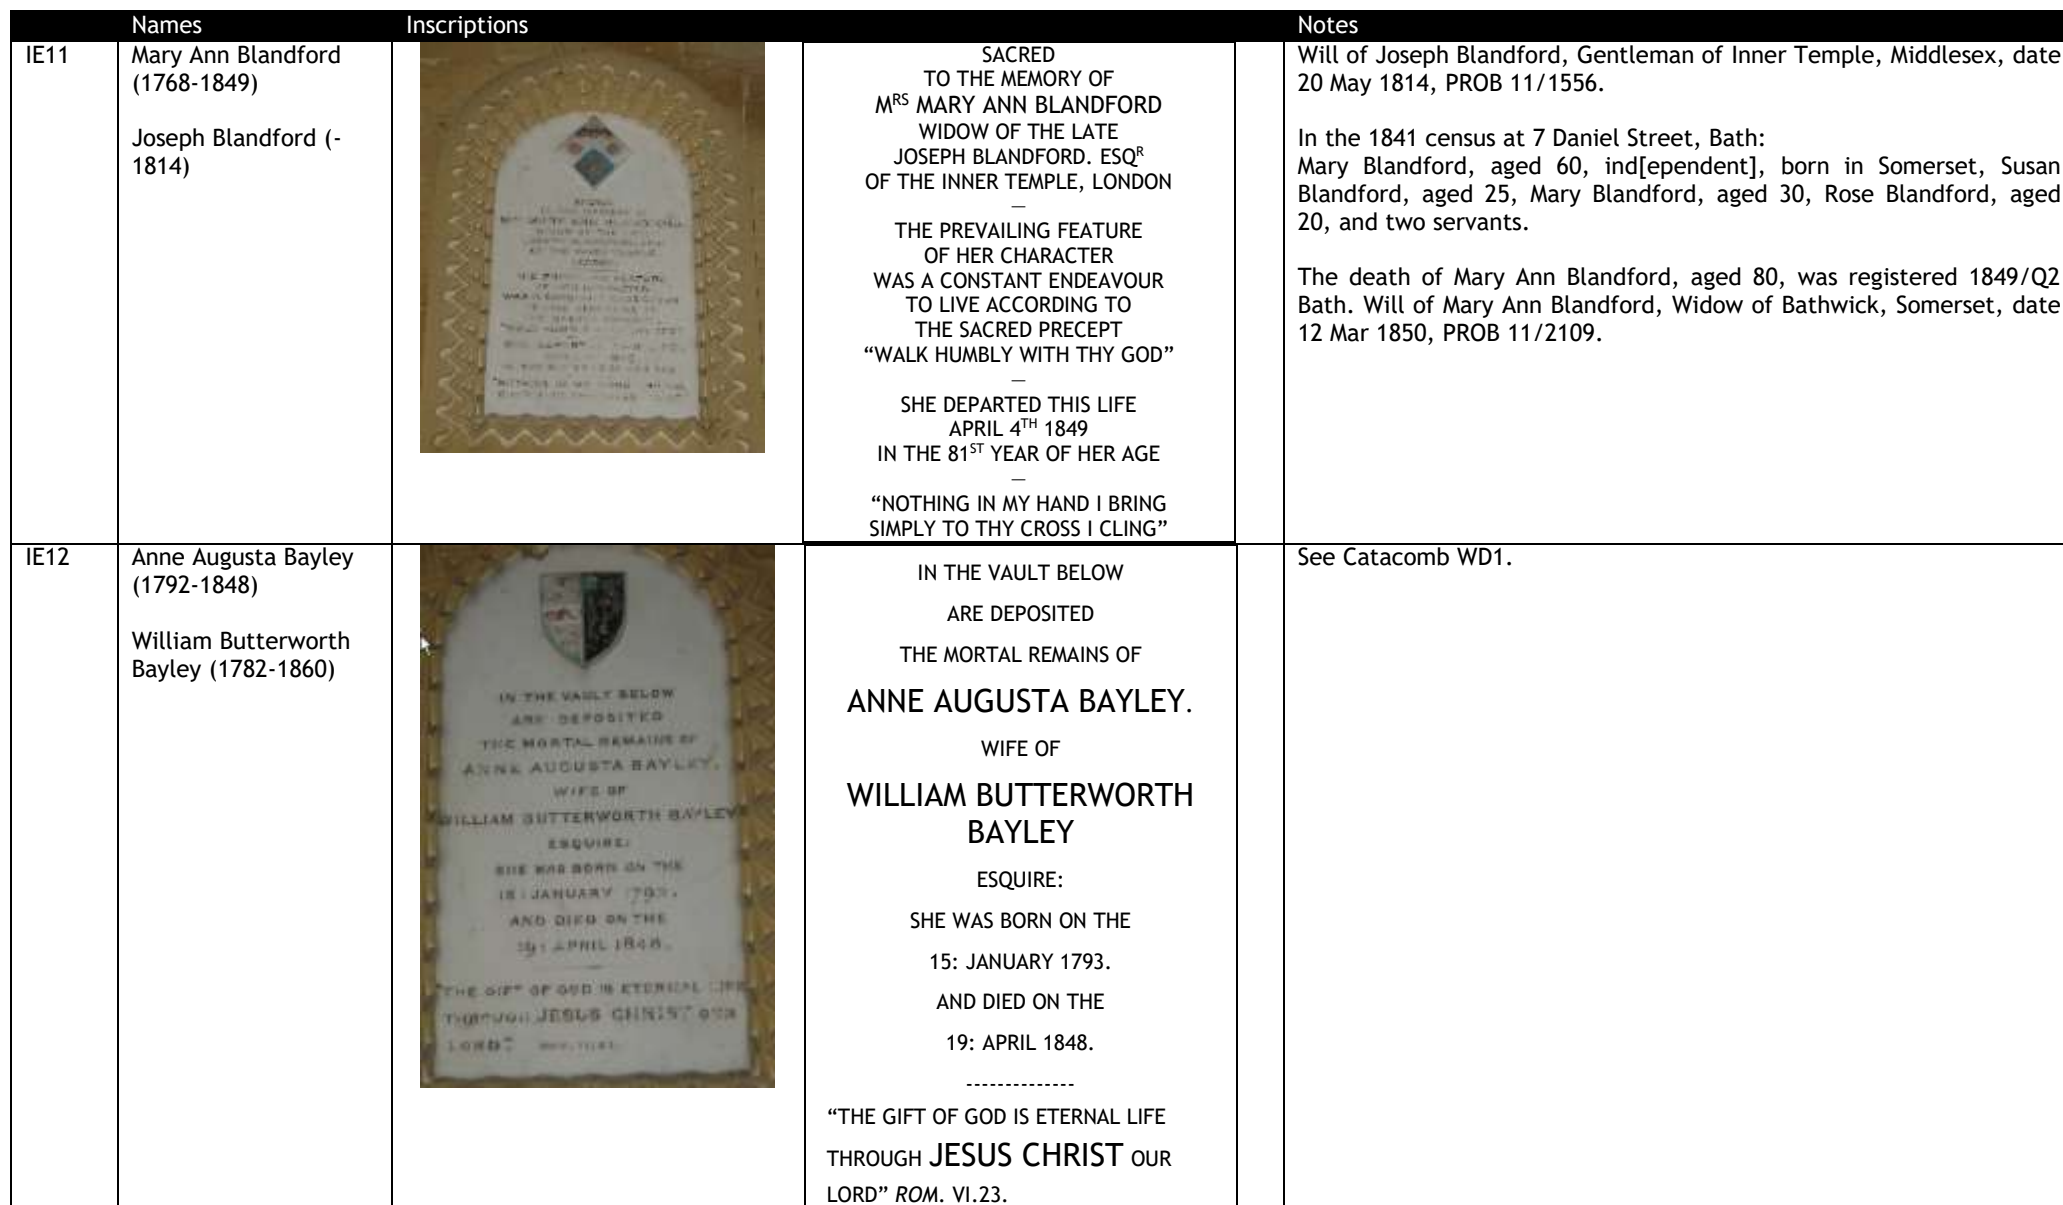 Names Inscriptions Notes
IE11
Mary Ann Blandford
(1768-1849)
Joseph Blandford (-
1814)
SACRED
TO THE MEMORY OF
MRS MARY ANN BLANDFORD
WIDOW OF THE LATE
JOSEPH BLANDFORD. ESQR
OF THE INNER TEMPLE, LONDON
—
THE PREVAILING FEATURE
OF HER CHARACTER
WAS A CONSTANT ENDEAVOUR
TO LIVE ACCORDING TO
THE SACRED PRECEPT
“WALK HUMBLY WITH THY GOD”
—
SHE DEPARTED THIS LIFE
APRIL 4TH 1849
IN THE 81ST YEAR OF HER AGE
—
“NOTHING IN MY HAND I BRING
SIMPLY TO THY CROSS I CLING”
Will of Joseph Blandford, Gentleman of Inner Temple, Middlesex, date
20 May 1814, PROB 11/1556.
In the 1841 census at 7 Daniel Street, Bath:
Mary Blandford, aged 60, ind[ependent], born in Somerset, Susan
Blandford, aged 25, Mary Blandford, aged 30, Rose Blandford, aged
20, and two servants.
The death of Mary Ann Blandford, aged 80, was registered 1849/Q2
Bath. Will of Mary Ann Blandford, Widow of Bathwick, Somerset, date
12 Mar 1850, PROB 11/2109.
IE12
Anne Augusta Bayley
(1792-1848)
William Butterworth
Bayley (1782-1860)
IN THE VAULT BELOW
ARE DEPOSITED
THE MORTAL REMAINS OF
ANNE AUGUSTA BAYLEY,
WIFE OF
WILLIAM BUTTERWORTH BAYLEY
ESQUIRE:
SHE WAS BORN ON THE
JANUARY
AND DIED ON THE
19: APRIL 1848.
"THE GIFT OF GOD IS ETERNAL LIFE
THROUGH JESUS CHRIST OUR
LORD"
IN THE VAULT BELOW
ARE DEPOSITED
THE MORTAL REMAINS OF
ANNE AUGUSTA BAYLEY.
WIFE OF
WILLIAM BUTTERWORTH
BAYLEY
ESQUIRE:
SHE WAS BORN ON THE
15: JANUARY 1793.
AND DIED ON THE
19: APRIL 1848.
--------------
“THE GIFT OF GOD IS ETERNAL LIFE
THROUGH JESUS CHRIST OUR
LORD” ROM. VI.23.
See Catacomb WD1.